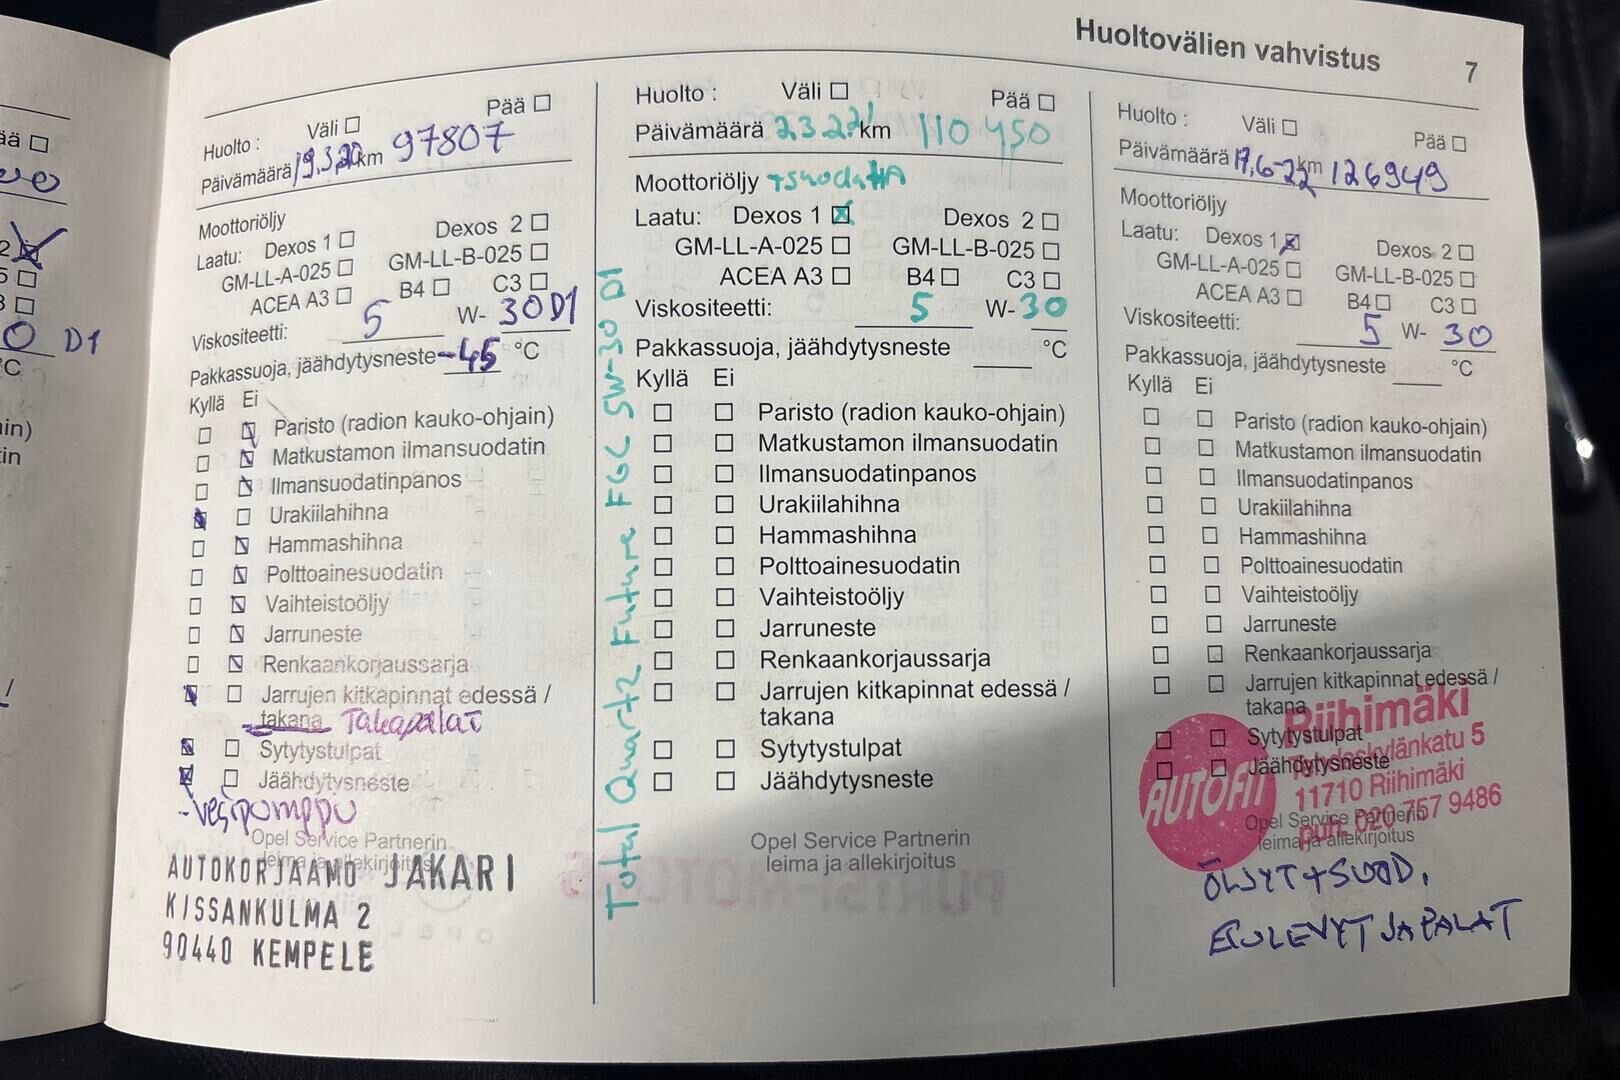 Huoltovälien vahvistus 7
Huolto : Väli Pää
Päivämäärä 19.3.20 km 97807
Moottoriöljy
Laatu: Dexos 1 Dexos 2
GM-LL-A-025 GM-LL-B-025
ACEA A3 B4 C3
Viskositeetti: 5 W- 30 D1
Pakkassuoja, jäähdytysneste -45 °C
Kyllä Ei
Paristo (radion kauko-ohjain)
Matkustamon ilmansuodatin
Ilmansuodatinpanos
Urakiilahihna
Hammashihna
Polttoainesuodatin
Vaihteistoöljy
Jarruneste
Renkaankorjaussarja
Jarrujen kitkapinnat edessä /
takana Takapalat
Sytytystulpat
Jäähdytysneste
-vesipumppu
Opel Service Partnerin
leima ja allekirjoitus
AUTOKORJAAMO JAKARI
KISSANKULMA 2
90440 KEMPELE
Huolto : Väli Pää
Päivämäärä 23.2.21 km 110 450
Moottoriöljy +suodatta
Laatu: Dexos 1 Dexos 2
GM-LL-A-025 GM-LL-B-025
ACEA A3 B4 C3
Viskositeetti: 5 W-30
Pakkassuoja, jäähdytysneste °C
Kyllä Ei
Paristo (radion kauko-ohjain)
Matkustamon ilmansuodatin
Ilmansuodatinpanos
Urakiilahihna
Hammashihna
Polttoainesuodatin
Vaihteistoöljy
Jarruneste
Renkaankorjaussarja
Jarrujen kitkapinnat edessä /
takana
Sytytystulpat
Jäähdytysneste
Opel Service Partnerin
leima ja allekirjoitus
Total Quartz Future FGC 5W-30 D1
Huolto : Väli Pää
Päivämäärä 17.6-22 km 126949
Moottoriöljy
Laatu: Dexos 1 Dexos 2
GM-LL-A-025 GM-LL-B-025
ACEA A3 B4 C3
Viskositeetti: 5 W- 30
Pakkassuoja, jäähdytysneste °C
Kyllä Ei
Paristo (radion kauko-ohjain)
Matkustamon ilmansuodatin
Ilmansuodatinpanos
Urakiilahihna
Hammashihna
Polttoainesuodatin
Vaihteistoöljy
Jarruneste
Renkaankorjaussarja
Jarrujen kitkapinnat edessä /
takana
Sytytystulpat
Jäähdytysneste
Opel Service Partnerin
leima ja allekirjoitus
AUTOFIT
Riihimäki
5
11710 Riihimäki
puh. 020 757 9486
ÖLJYT+SUOD,
ETULEVYT JA PALAT